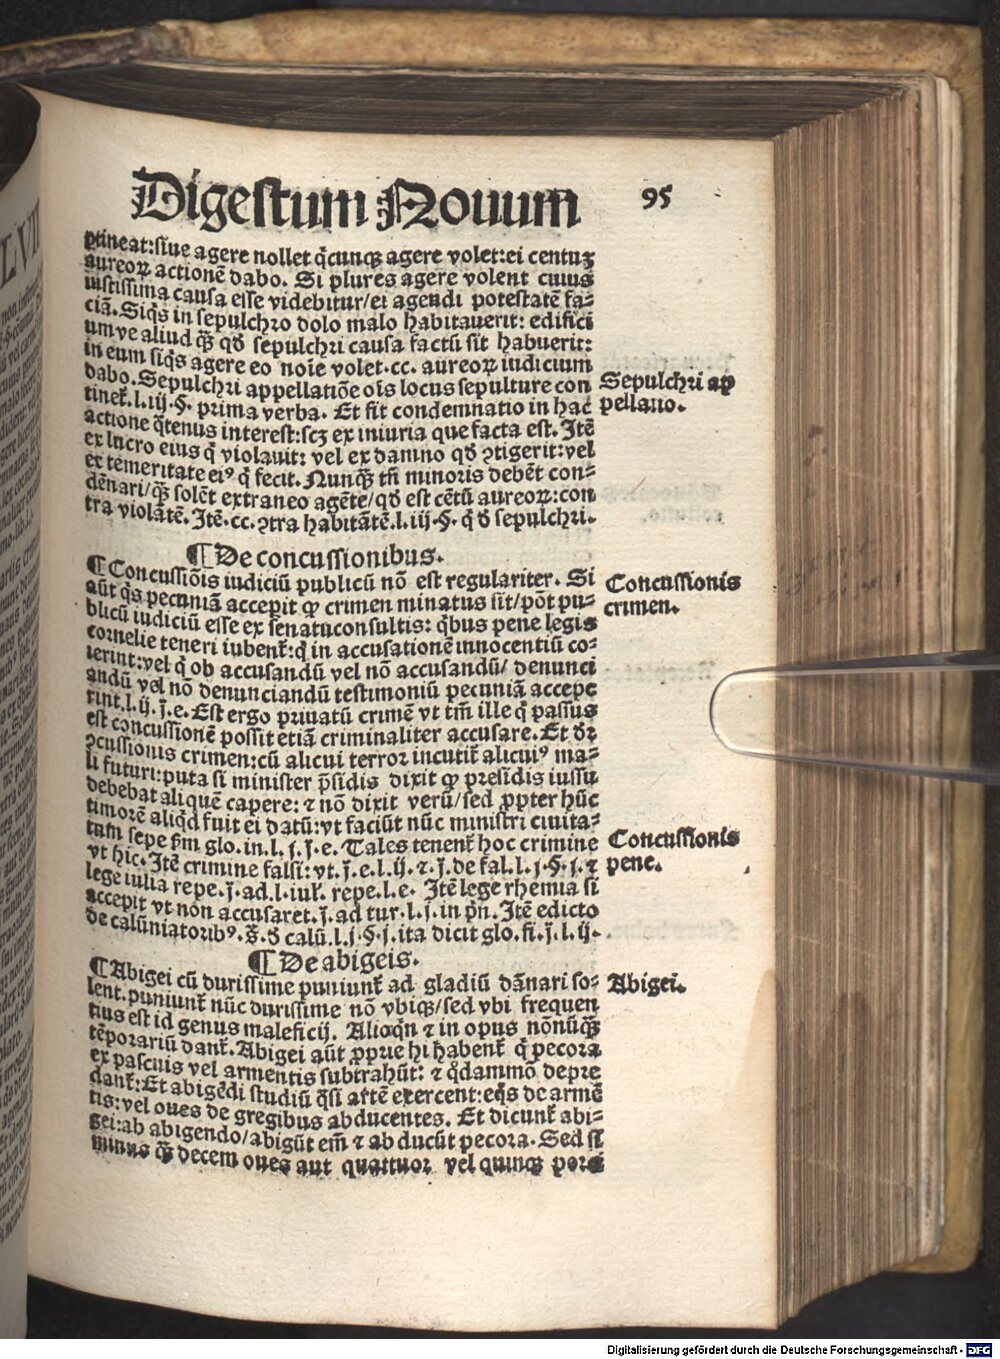 Digestum Nouum
95
ptineat:siue agere nollet q̃cunqꝫ agere volet:ei centuꝫ
aureoꝝ actionẽ dabo. Si plures agere volent cuius
iustissima causa esse videbitur/ei agendi potestatẽ fa-
ciã. Siq̃s in sepulchro dolo malo habitauerit: edifici
umve aliud q̃ꝫ qđ sepulchri causa factũ sit habuerit:
in eum siq̃s agere eo noĩe volet.cc. aureoꝝ iudicium
dabo. Sepulchri appellatiõe oĩs locus sepulture con
tinet̃.l.iij.§. prima verba. Et fit condemnatio in hac
actione q̃tenus interest:scꝫ ex iniuria que facta est. Itẽ
ex lucro eius q̃ violauit: vel ex damno qđ ꝯtigerit:vel
ex temeritate eiꝰ q̃ fecit. Nunq̃ꝫ tñ minoris debẽt con-
dẽnari/q̃ꝫ solẽt extraneo agẽte/qđ est cẽtũ aureoꝝ:con
tra violãtẽ. Itẽ.cc. ꝯtra habitãtẽ.l.iij.§. q̃ đ sepulchri.
Sepulchri ap
pellatio.
¶ De concussionibus.
¶ Concussiõis iudiciũ publicũ nõ est regulariter. Si
aũt q̃s pecuniã accepit ꝙ crimen minatus sit/põt pu-
blicũ iudiciũ esse ex senatuconsultis: q̃bus pene legis
cornelie teneri iubent̃:q̃ in accusationẽ innocentiũ co-
ierint:vel q̃ ob accusandũ vel nõ accusandũ/ denunci
andũ vel nõ denunciandũ testimoniũ pecuniã accepe
rint.l.ij.ꝭ.e. Est ergo priuatũ crimẽ vt tñ ille q̃ passus
est concussionẽ possit etiã criminaliter accusare. Et đꝛ
ꝯcussionis crimen:cũ alicui terror incutit̃ alicuiꝰ ma-
li futuri:puta si minister p̃sidis dixit ꝙ presidis iussu
debebat aliquẽ capere: ⁊ nõ dixit verũ/sed ꝓpter hũc
timorẽ aliq̃d fuit ei datũ:vt faciũt nũc ministri ciuita-
tum sepe ẜm glo.in.l.j.ꝭ.e. Tales tenent̃ hoc crimine
vt hic. Itẽ crimine falsi: vt.ꝭ.e.l.ij.⁊.ꝭ.de fal.l.j.§.j.⁊
lege iulia repe.ꝭ.ad.l.iul̃. repe.l.e. Itẽ lege rhemia si
accepit vt non accusaret.ꝭ.ad tur.l.j.in pñ. Itẽ edicto
de calũniatoribꝰ.s̃.đ calũ.l.j.§.j.ita dicit glo.fi.ꝭ.l.ij.
Concussionis
crimen.
Concussionis
pene.
¶ De abigeis.
¶ Abigei cũ durissime puniunt̃ ad gladiũ dãnari so-
lent. puniunt̃ nũc durissime nõ vbiqꝫ/sed vbi frequen
tius est id genus maleficij. Alioqñ ⁊ in opus nõnũq̃ꝫ
tẽporariũ dant̃. Abigei aũt ꝓprie hi habent̃ q̃ pecora
ex pascuis vel armentis subtrahũt: ⁊ q̃dammõ depre
dant̃:Et abigẽdi studiũ q̃si artẽ exercent:eq̃s de armẽ
tis:vel oues de gregibus abducentes. Et dicunt̃ abi-
gei:ab abigendo/abigũt em̃ ⁊ abducũt pecora. Sed si
minus q̃ꝫ decem oues aut quattuor vel quinqꝫ porci
Abigei.
Digitalisierung gefördert durch die Deutsche Forschungsgemeinschaft - DFG